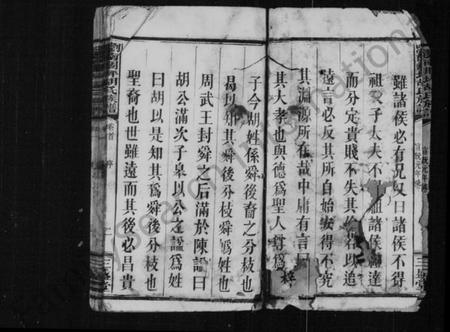 難諸侯必有兄又曰諸侯不得
祖天子大夫不祖諸侯達
而分定貴賤不失其倫以追
遠言必反其所自始安得不究
其淵源所在哉中庸有言曰
其大孝也與德爲聖人尊爲
子今胡姓係舜後裔之分枝也
曷以知其舜後分枝舜爲姓也
周武王封舜之后滿於陳諡曰
胡公滿次子臯以公之諡爲姓
曰胡以是知其爲舜後分枝也
聖裔也世雖遠而其後必昌貴
胡氏族譜
卷首
序
三
堂
宣統元年